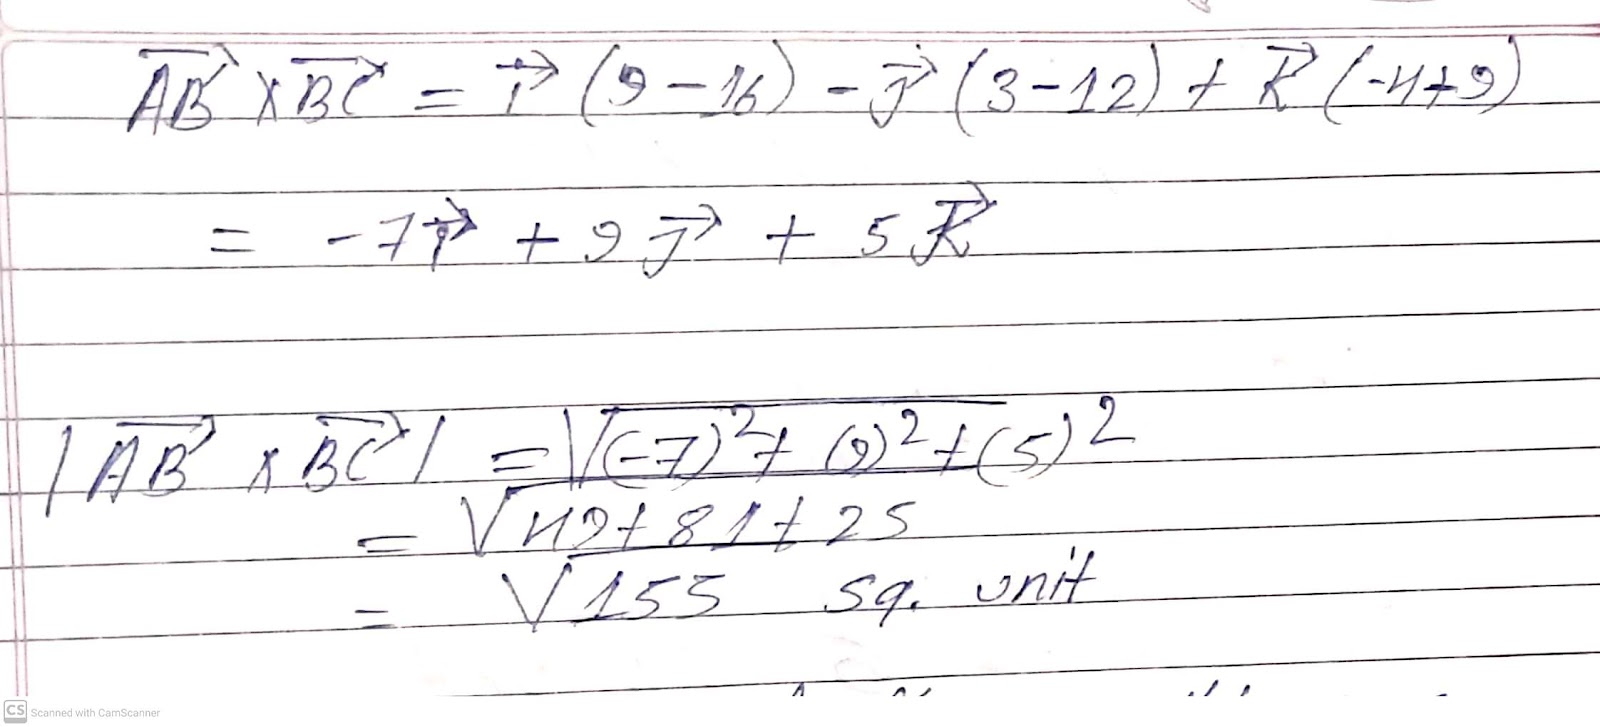 AB⃗ × BC⃗ = i⃗ (9-16) - j⃗ (3-12) + k⃗ (-4+9)
= -7i⃗ + 9j⃗ + 5k⃗
|AB⃗ × BC⃗| = √(-7)² + (9)² + (5)²
= √49+81+25
= √155 sq. unit
CS Scanned with CamScanner